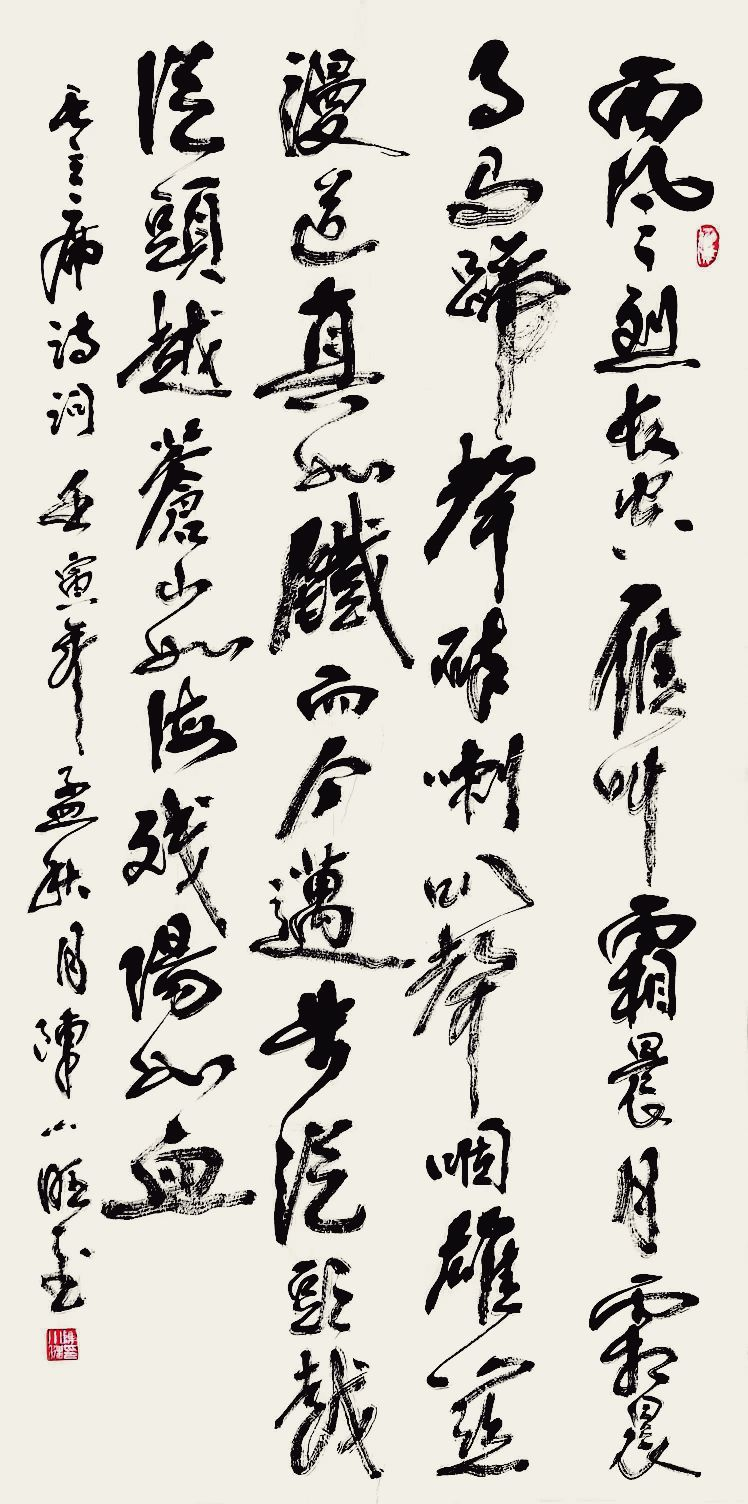 西风烈长空雁叫霜晨月霜晨
月马蹄聲碎喇叭聲咽雄关
漫道真如鐵而今邁步從頭越
從頭越蒼山如海残陽如血
毛主席诗词壬寅年孟秋月陳小书